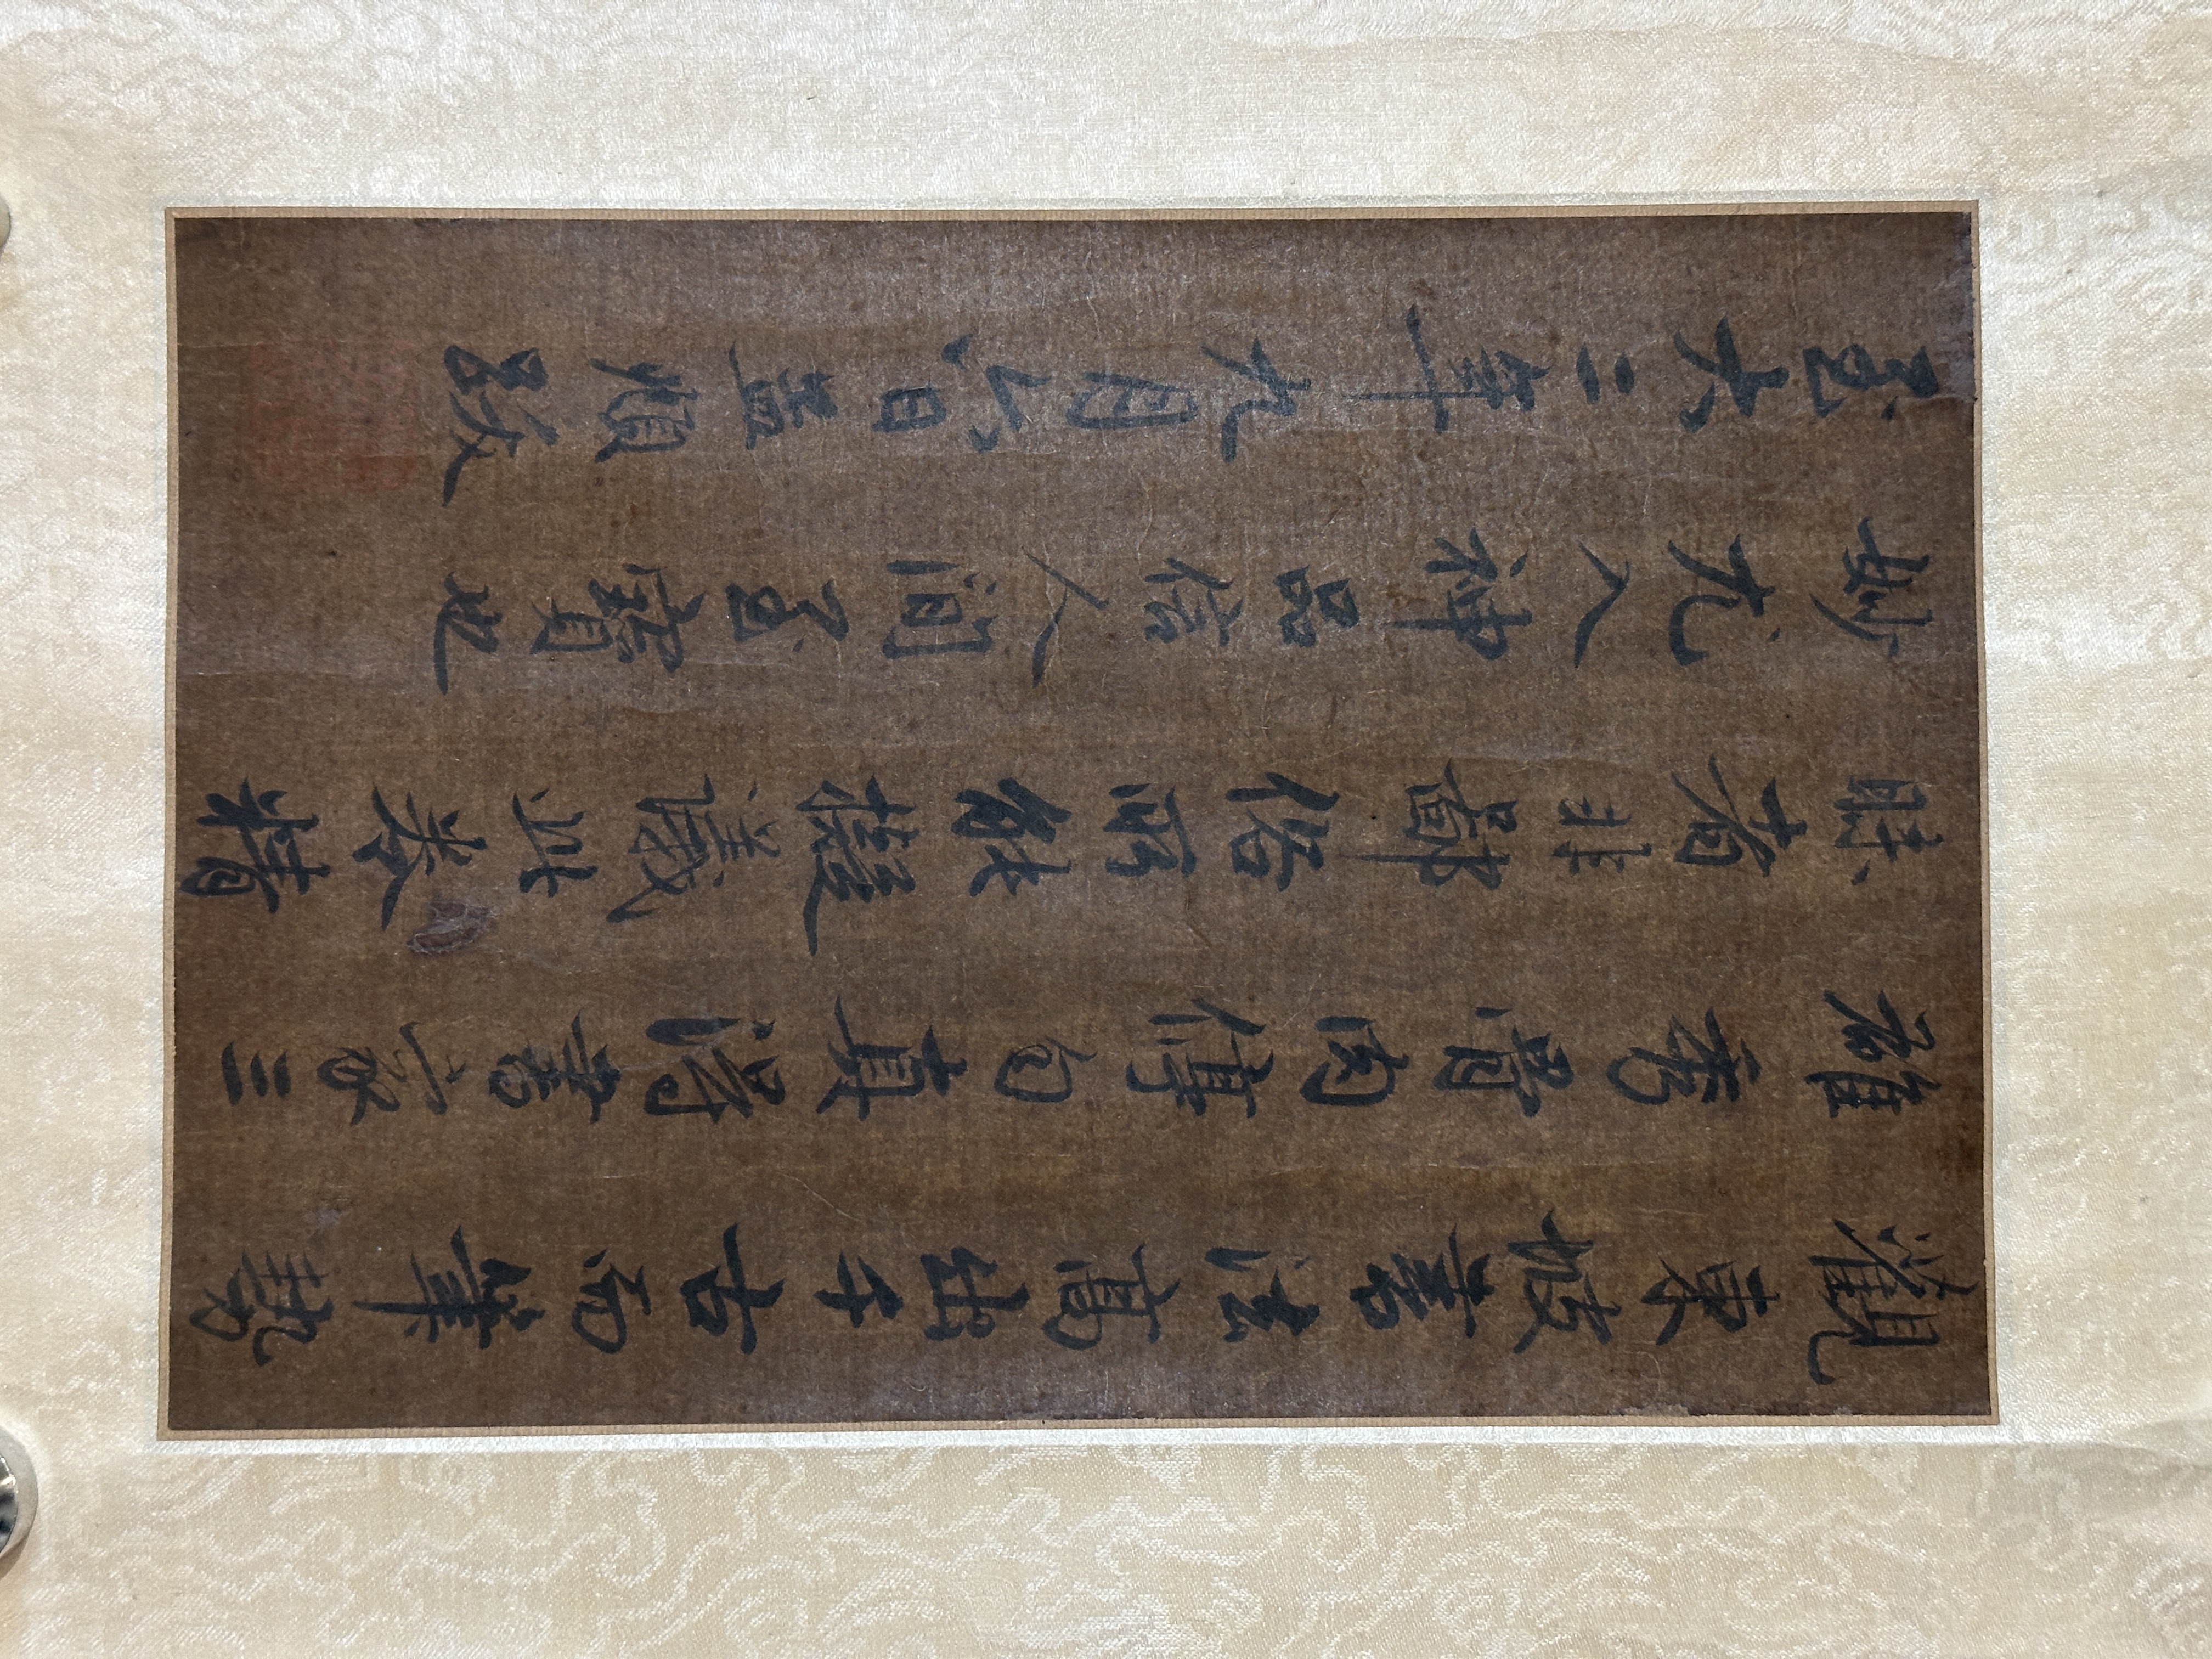 觀東坡書法高出千古而筆勢
雄秀骨肉停勻真得書家三
昧者非鄙俗所能擬議此卷精
妙尤入神品信人間至寶也
至大二年九月六日孟頫跋